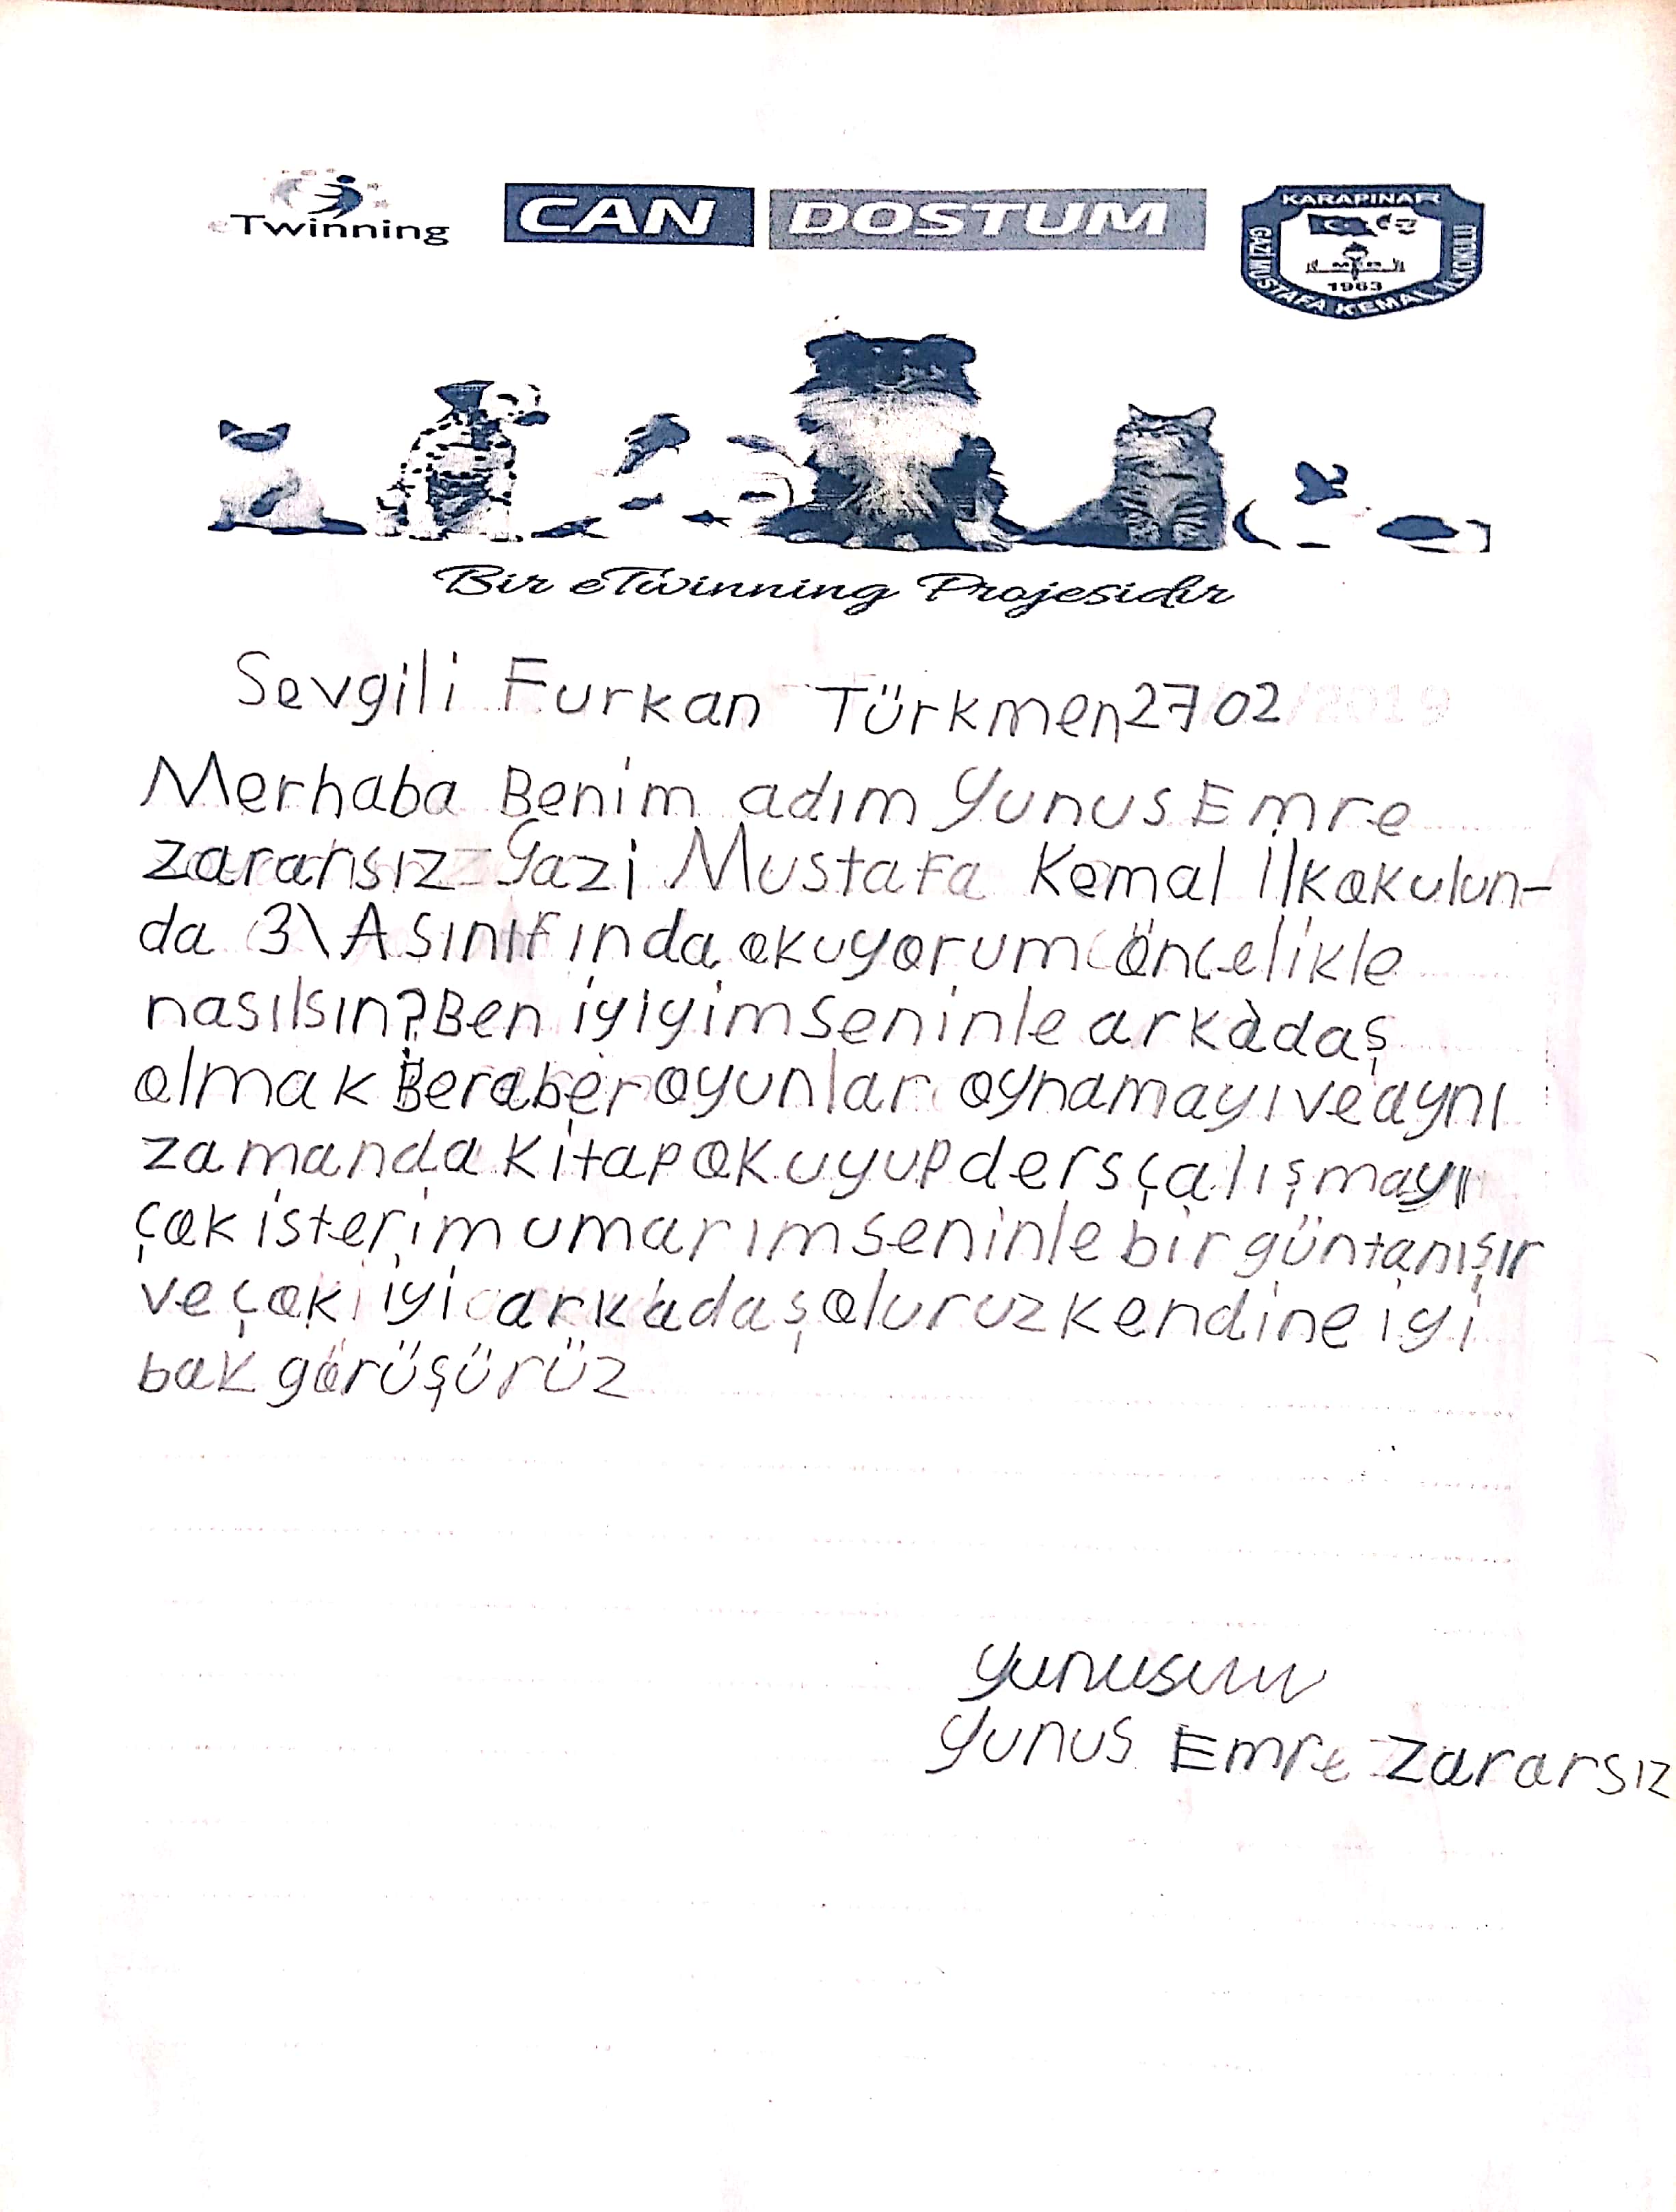 eTwinning
CAN DOSTUM
KARAPINAR
GAZİ MUSTAFA KEMAL İLKOKULU
1963
Bir eTwinning Projesidir
Sevgili Furkan Türkmen 27 02 /2019
Merhaba Benim adım Yunus Emre
zararsız Gazi Mustafa Kemal İlkokulun-
da 3\A sınıfında okuyorum öncelikle
nasılsın? Ben iyiyim seninle arkadaş
olmak Beraber oyunlar oynamayı ve aynı
zamanda kitap okuyup ders çalışmayı
çok isterim umarım seninle bir gün tanışır
ve çok iyi arkadaş oluruz kendine iyi
bak görüşürüz
Yunus Emre Zararsız